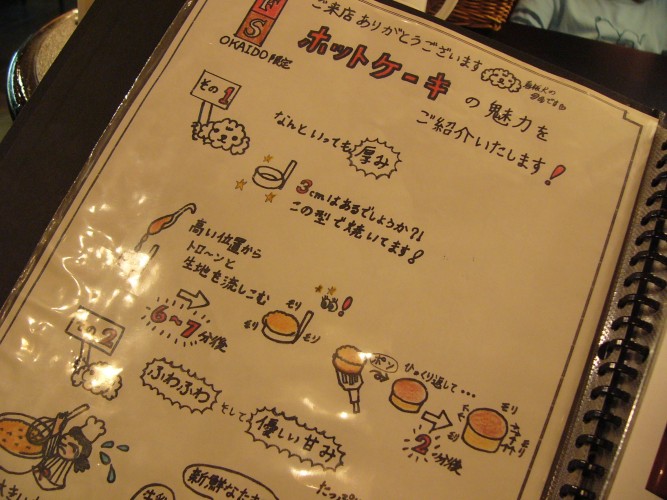 FS
OKAIDO限定
ご来店ありがとうございます
ホットケーキの魅力を
ご紹介いたします!
その1
なんといっても厚み
3cmはあるでしょうか?!
この型で焼いてます!
高い位置から
トローンと
生地を流しこむ
6~7分後
モリ
モリ
ポン
ひっくり返して…
2分後
モリ
モリ
モリ
その2
ふわふわ
そして
優しい甘み
新鮮なたま
たっぷ
大きい